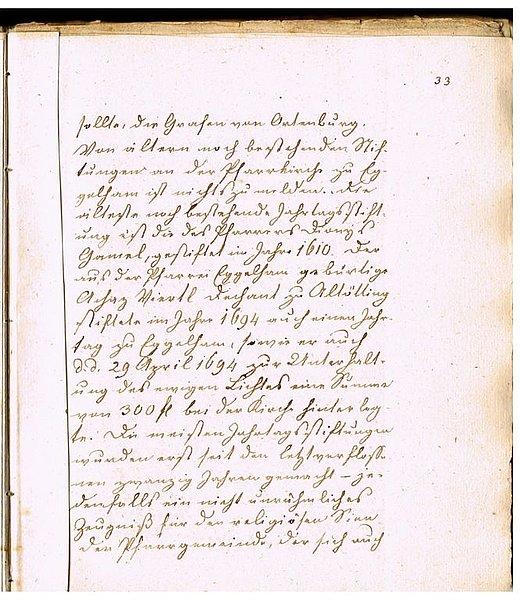 33
sollte, die Grafen von Ortenburg.
Von ältern noch bestehenden Stif-
tungen an der Pfarrkirche zu Eg-
gelham ist nichts zu melden. Die
älteste noch bestehende Jahrtagsstift-
ung ist die des Pfarrers Dionys
Gamel, gestiftet im Jahre 1610. Der
aus der Pfarrei Eggelham gebürtige
Achaz Viertl Dechant zu Altötting
stiftete im Jahre 1694 auch einen Jahr-
tag zu Eggelham, sowie er auch
d.d. 29 April 1694 zur Unterhalt-
ung des ewigen Lichtes eine Summe
von 300 fl bei der Kirche hinterleg-
te. Die meisten Jahrtagsstiftungen
wurden erst seit den letztverfloss-
nen zwanzig Jahren gemacht – je-
denfalls ein nicht unrühmliches
Zeugniß für den religiösen Sinn
der Pfarrgemeinde, der sich auch